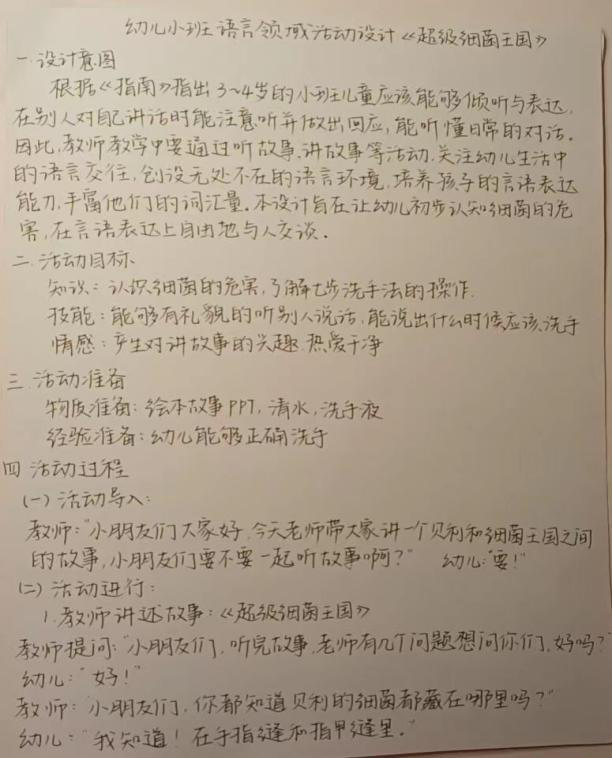 幼儿小班语言领域活动设计《超级细菌王国》
一.设计意图
根据《指南》指出3~4岁的小班儿童应该能够倾听与表达,
在别人对自己讲话时能注意听并做出回应,能听懂日常的对话.
因此,教师教学中要通过听故事.讲故事等活动.关注幼儿生活中
的语言交往,创设无处不在的语言环境,培养孩子的言语表达
能力,丰富他们的词汇量.本设计旨在让幼儿初步认知细菌的危
害,在言语表达上自由地与人交谈.
二.活动目标
知识:认识细菌的危害,了解七步洗手法的操作.
技能:能够有礼貌的听别人说话,能说出什么时候应该洗手
情感:产生对讲故事的兴趣.热爱干净
三.活动准备
物质准备:绘本故事PPT,清水,洗手液
经验准备:幼儿能够正确洗手
四 活动过程
(一)活动导入:
教师:"小朋友们大家好,今天老师带大家讲一个贝利和细菌王国之间
的故事,小朋友们要不要一起听故事啊?" 幼儿:"要!"
(二)活动进行:
1.教师讲述故事:《超级细菌王国》
教师提问:"小朋友们,听完故事,老师有几个问题想问你们,好吗?"
幼儿:"好!"
教师:"小朋友们,你都知道贝利的细菌都藏在哪里吗?"
幼儿:"我知道!在手指缝和指甲缝里."